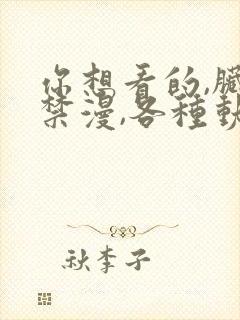 你想看的,臟
禁漫,各種軟
秋李子